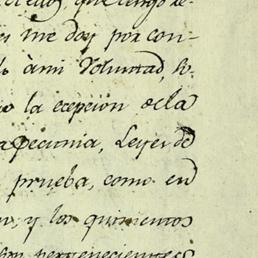 me doy por con-
à mi Voluntad, R.
la ecepcion de la
Pecunia, Leyes de
prueba, como en
y los quinientos
pertenecientes